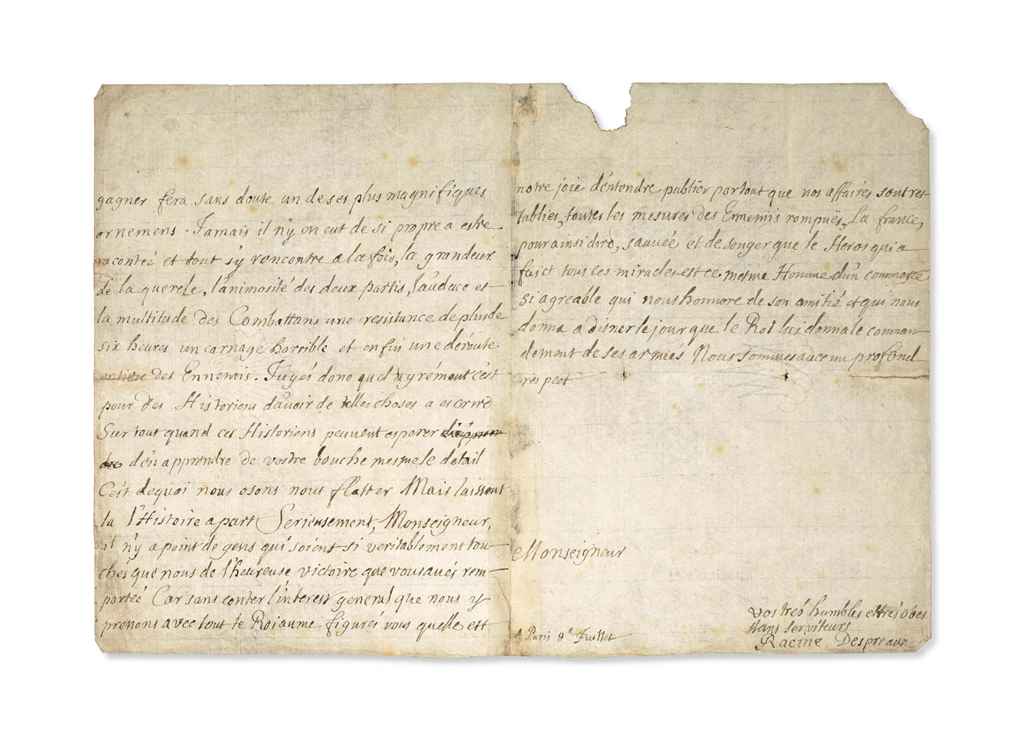 gagner fera sans doute un de ses plus magnifiques
ornemens. Jamais il n'y en eut de si propre a estre
racontée et tout s'y rencontre a la fois, la grandeur
de la querele, l'animosité des deux partis, l'audace et
la multitude des Combattans une resistance de plus de
six heures un carnage horrible et enfin une déroute
entiere des Ennemis. Jugés donc quel agrément c'est
pour des Historiens d'avoir de telles choses a escrire
Sur tout quand ces Historiens peuvent esperer
d'en apprendre de vostre bouche mesme le détail
C'est dequoi nous osons nous flatter Mais laissant
la l'Histoire a part Serieusement, Monseigneur,
il n'y a point de gens qui soient si veritablement tou-
chés que nous de l'heureuse victoire que vous avés rem-
portée Car sans conter l'interest general que nous y
prenons avec tout le Roiaume figurés vous quelle est
notre joie d'entendre publier partout que nos affaires sont res-
tablies, toutes les mesures des Ennemis rompuës, La france,
pour ainsi dire, sauvée et de songer que le Heros qui a
faict tous ces miracles est ce mesme Homme d'un commerce
si agreable qui nous honnore de son amitié et qui nous
donna a disner le jour que le Roi lui donna le comman-
dement de ses armées Nous sommes avec un profond
respect
Monseigneur
A Paris 8e Juillet
Vos tres humbles et tres obeis-
sans serviteurs
Racine Despreaux